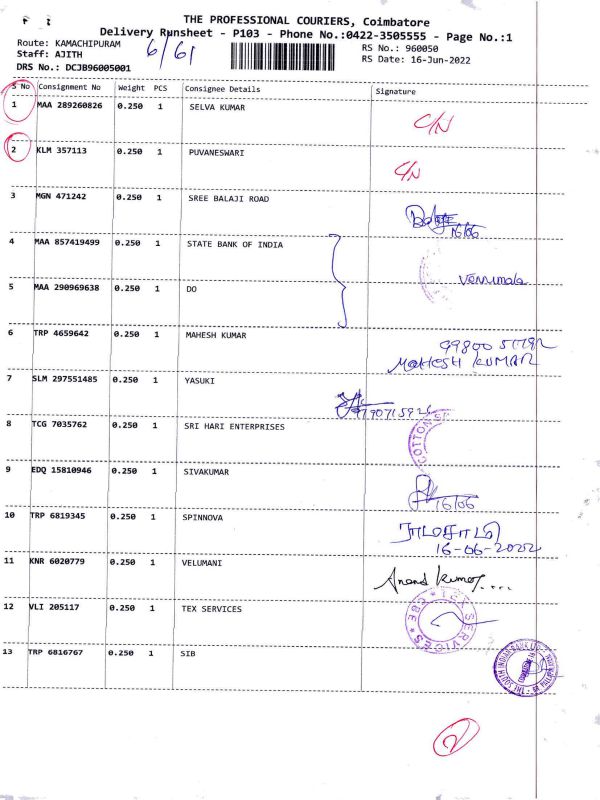 THE PROFESSIONAL COURIERS, Coimbatore
Delivery Runsheet - P103 - Phone No.:0422-3505555 - Page No.:1
Route: KAMACHIPURAM
Staff: AJITH
DRS No.: DCJB96005001
6/61
RS No.: 960050
RS Date: 16-Jun-2022
S No Consignment No Weight PCS Consignee Details Signature
1 MAA 289260826 0.250 1 SELVA KUMAR C/N
2 KLM 357113 0.250 1 PUVANESWARI C/N
3 MGN 471242 0.250 1 SREE BALAJI ROAD
16/06
4 MAA 857419499 0.250 1 STATE BANK OF INDIA
5 MAA 290969638 0.250 1 DO
6 TRP 4659642 0.250 1 MAHESH KUMAR
MAHESH KUMAR
7 SLM 297551485 0.250 1 YASUKI
8 TCG 7035762 0.250 1 SRI HARI ENTERPRISES
COTTON
9 EDQ 15810946 0.250 1 SIVAKUMAR
16/06
10 TRP 6819345 0.250 1 SPINNOVA
ராமசாமி
16-06-2022
11 KNR 6020779 0.250 1 VELUMANI
Anand Kumar....
12 VLI 205117 0.250 1 TEX SERVICES
SERVICES * CBE *
13 TRP 6816767 0.250 1 SIB
2